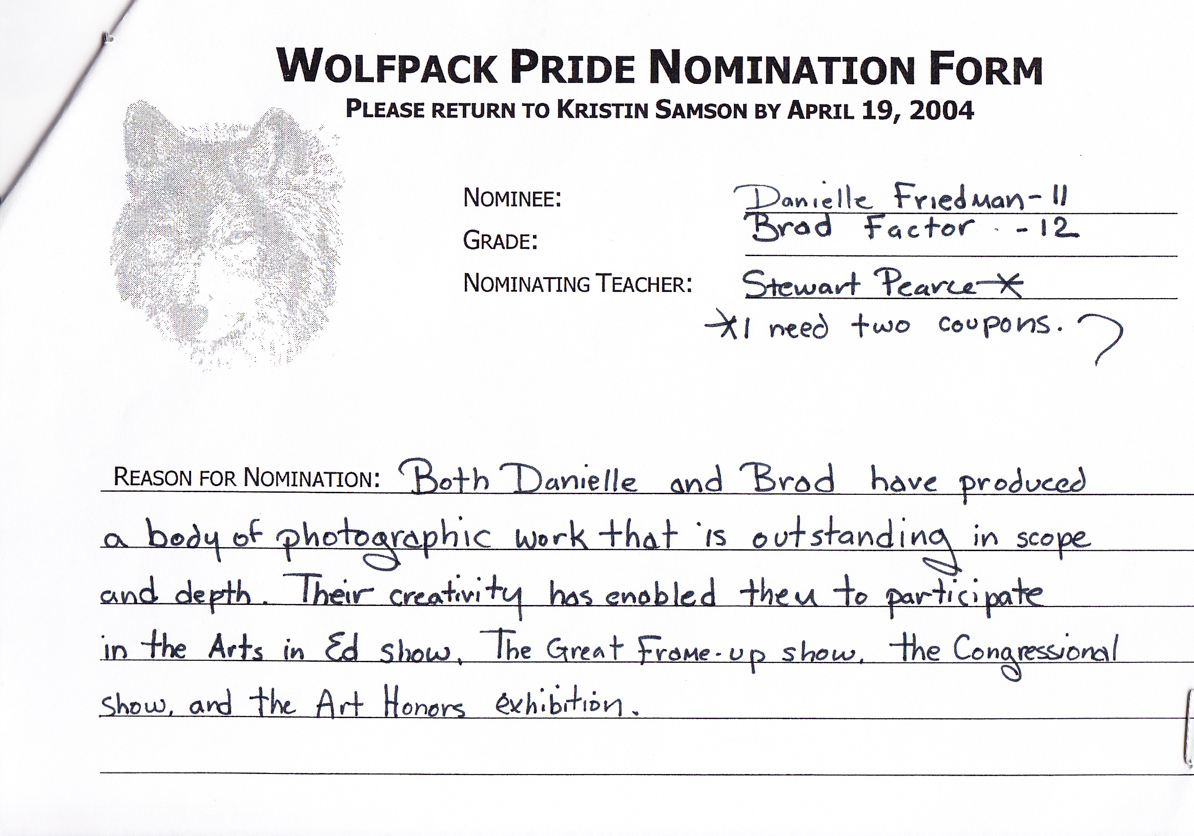 WOLFPACK PRIDE NOMINATION FORM
PLEASE RETURN TO KRISTIN SAMSON BY APRIL 19, 2004
NOMINEE: Danielle Friedman - 11
GRADE: Brad Factor - 12
NOMINATING TEACHER: Stewart Pearce *
* I need two coupons.
REASON FOR NOMINATION: Both Danielle and Brad have produced
a body of photographic work that is outstanding in scope
and depth. Their creativity has enabled them to participate
in the Arts in Ed show, The Great Frame-up show, the Congressional
show, and the Art Honors exhibition.